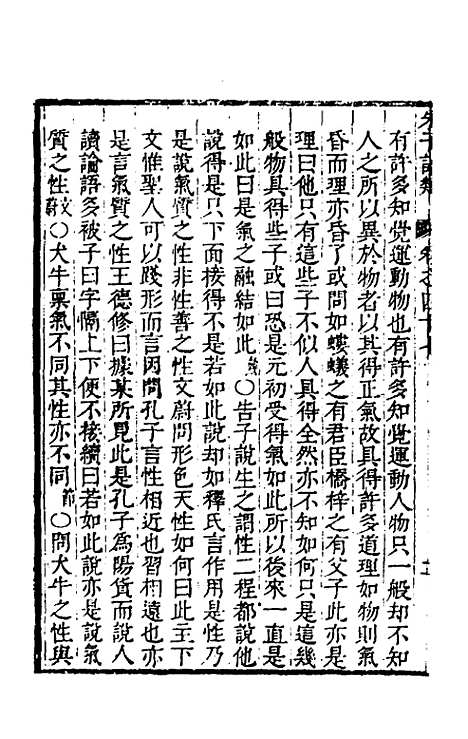 有許多知覺運動物也有許多知覺運動人物只一般却不知
人之所以異於物者以其得正氣故具得許多道理如物則氣
昏而理亦昏了或問如螻蟻之有君臣橋梓之有父子此亦是
理曰他只有這些子不似人具得全然亦不知如何只是這幾
般物具得些子或曰恐是元初受得氣如此所以後來一直是
如此曰是氣之融結如此燾○告子說生之謂性二程都說他
說得是只下面接得不是若如此說却如釋氏言作用是性乃
是說氣質之性非性善之性文蔚問形色天性如何曰此主下
文惟聖人可以踐形而言因問孔子言性相近也習相遠也亦
是言氣質之性王德修曰據某所見此是孔子為陽貨而說人
讀論語多被子曰字隔上下便不接續曰若如此說亦是說氣
質之性文蔚○犬牛稟氣不同其性亦不同節○問犬牛之性與